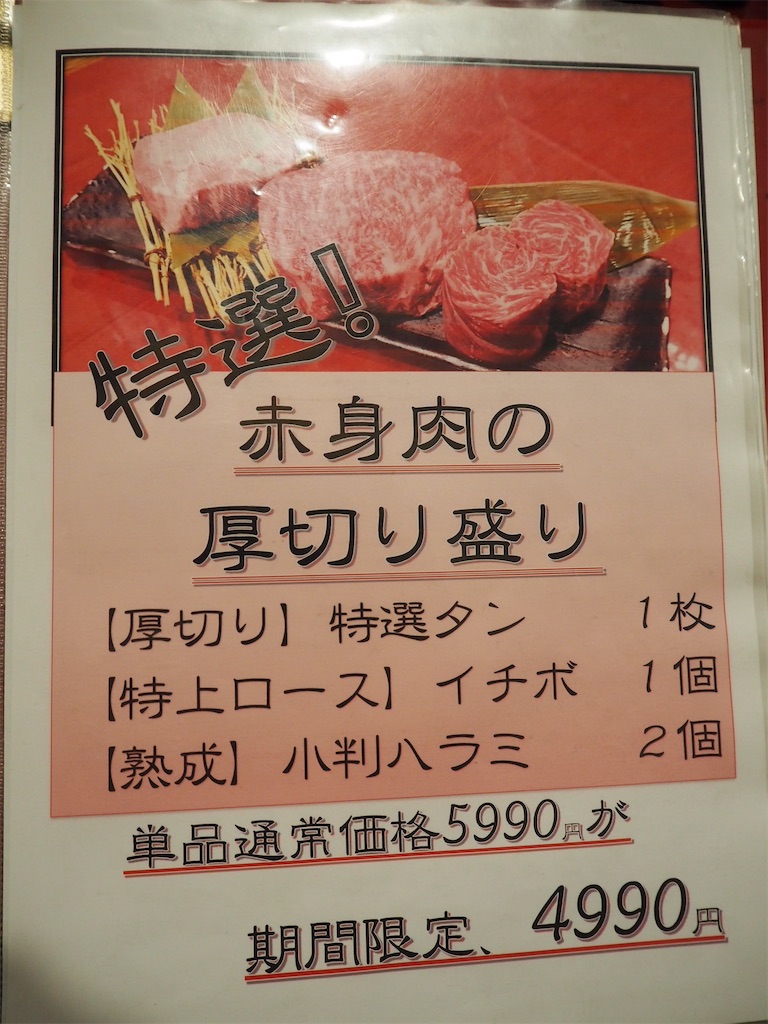 特選！
赤身肉の
厚切り盛り
【厚切り】特選タン 1枚
【特上ロース】イチボ 1個
【熟成】小判ハラミ 2個
単品通常価格5990円が
期間限定、4990円